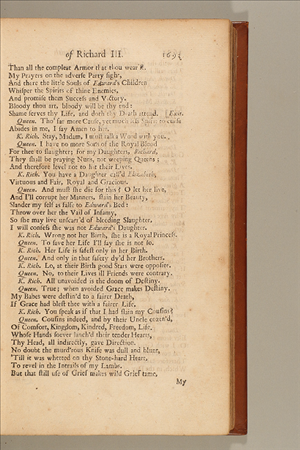 of Richard III. 169
Than all the compleat Armor that thou wear'st.
My Prayers on the adverse Party fight,
And there the little Souls of Edward's Children
Whisper the Spirits of thine Enemies,
And promise them Success and Victory.
Bloody thou art, bloody will be thy end:
Shame serves thy Life, and doth thy Death attend. [Exit.
Queen. Tho' far more Cause, yet much less Spirit to curse
Abides in me, I say Amen to her.
K. Rich. Stay, Madam, I must talk a Word with you.
Queen. I have no more Sons of the Royal Blood
For thee to slaughter; for my Daughters, Richard,
They shall be praying Nuns, not weeping Queens;
And therefore level not to hit their Lives.
K. Rich. You have a Daughter call'd Elizabeth,
Virtuous and Fair, Royal and Gracious.
Queen. And must she die for this? O let her live,
And I'll corrupt her Manners, stain her Beauty,
Slander my self as false to Edward's Bed:
Throw over her the Vail of Infamy,
So she may live unscarr'd of bleeding Slaughter,
I will confess she was not Edward's Daughter.
K. Rich. Wrong not her Birth, she is a Royal Princess.
Queen. To save her Life I'll say she is not so.
K. Rich. Her Life is safest only in her Birth.
Queen. And only in that safety dy'd her Brothers.
K. Rich. Lo, at their Birth good Stars were opposite.
Queen. No, to their Lives ill Friends were contrary.
K. Rich. All unavoided is the doom of Destiny.
Queen. True; when avoided Grace makes Destiny.
My Babes were destin'd to a fairer Death,
If Grace had blest thee with a fairer Life.
K. Rich. You speak as if that I had slain my Cousins?
Queen. Cousins indeed, and by their Uncle cozen'd,
Of Comfort, Kingdom, Kindred, Freedom, Life,
Whose Hands soever lanch'd their tender Hearts,
Thy Head, all indirectly, gave Direction.
No doubt the murd'rous Knife was dull and blunt,
'Till it was whetted on thy Stone-hard Heart,
To revel in the Intrails of my Lambs.
But that still use of Grief makes wild Grief tame,
My